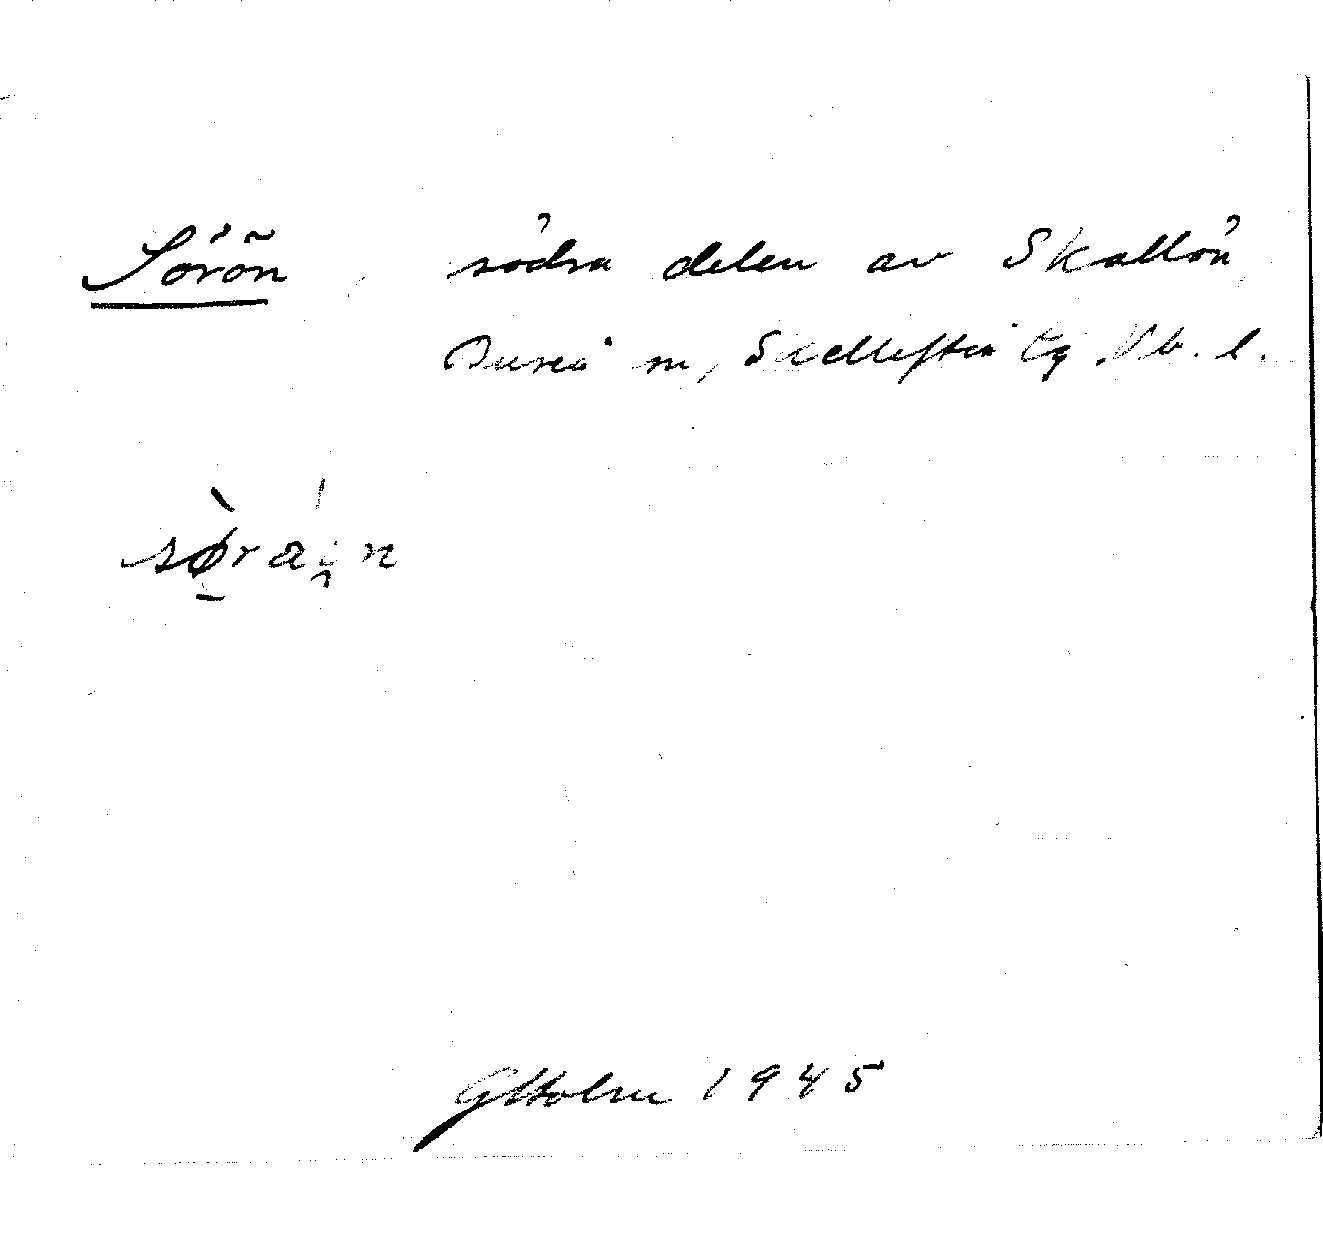 Sörön, södra delen av Skallön
Bureå sn, Skellefteå tg Vb. l.
sø̀rái̯n
GHolm 1945